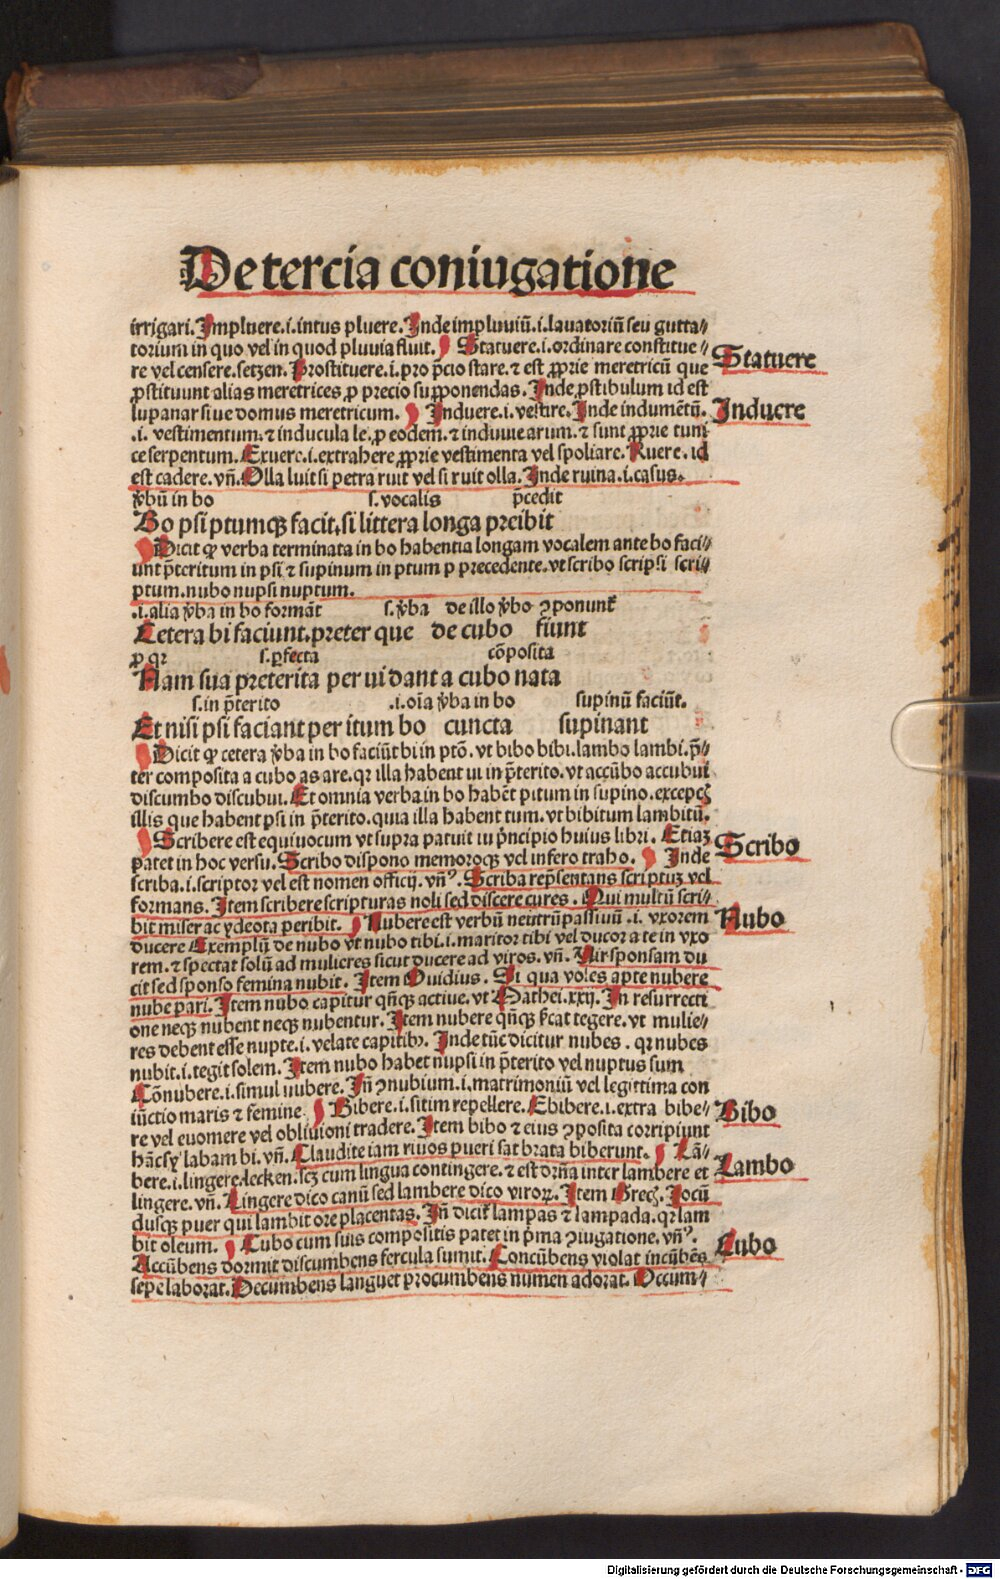 De tercia coniugatione
irrigari. Impluere .i. intus pluere. Inde impluuiū .i. lauatoriū seu gutta⸗
torium in quo vel in quod pluuia fluit. Statuere .i. ordinare constitue⸗
Statuere
re vel censere. setzen. Prostituere .i. pro p̄cio stare. ⁊ est ꝓprie meretricū que
ꝓstituunt alias meretrices ꝓ precio suꝓponendas. Inde ꝓstibulum id est
lupanar siue domus meretricum. Induere .i. vestire. Inde indumētū.
Induere
.i. vestimentum. ⁊ inducula le. ꝓ eodem. ⁊ induuie arum. ⁊ sunt ꝓprie tuni
ce serpentum. Exuere .i. extrahere ꝓprie vestimenta vel spoliare. Ruere. id
est cadere. vñ. Olla luit si petra ruit vel si ruit olla. Inde ruina .i. casus.
v̓bū in bo s. vocalis p̄cedit
Bo psi ptumqꝫ facit, si littera longa preibit
Dicit ꝙ verba terminata in bo habentia longam vocalem ante bo faci⸗
unt p̄teritum in psi ⁊ supinum in ptum p precedente. vt scribo scripsi scri⸗
ptum. nubo nupsi nuptum.
.i. alia v̓ba in bo formāt s. v̓ba de illo v̓bo ꝯponunt̄
Cetera bi faciunt. preter que de cubo fiunt
ꝓ qꝛ s. ꝑfecta cōposita
Nam sua preterita per ui dant a cubo nata
s. in p̄terito .i. oīa v̓ba in bo supinū faciūt.
Et nisi psi faciant per itum bo cuncta supinant
Dicit ꝙ cetera v̓ba in bo faciūt bi in ptō. vt bibo bibi. lambo lambi. p̄⸗
ter composita a cubo as are. qꝛ illa habent ui in p̄terito. vt accūbo accubui
discumbo discubui. Et omnia verba in bo habēt pitum in supino. exceptꝭ
illis que habent psi in p̄terito. quia illa habent tum. vt bibitum lambitū.
Scribere est equiuocum vt supra patuit in p̓ncipio huius libri. Etiaꝫ
Scribo
patet in hoc versu. Scribo dispono memoroqꝫ vel infero traho. Inde
scriba .i. scriptor vel est nomen officij. vñꝰ. Scriba rep̄sentans scriptuꝫ vel
formans. Item scribere scripturas noli sed discere cures. Qui multū scri⸗
bit miser ac ydeota peribit. Nubere est verbū neutrūpassiuū .i. vxorem
Nubo
ducere Exemplū de nubo vt nubo tibi .i. maritor tibi vel ducor a te in vxo
rem. ⁊ spectat solū ad mulieres sicut ducere ad viros. vñ. Vir sponsam du
cit sed sponso femina nubit. Item Ouidius. Si qua voles apte nubere
nube pari. Item nubo capitur qn̄qꝫ actiue. vt Mathei .xxij. In resurrecti
one neqꝫ nubent neqꝫ nubentur. Item nubere qn̄qꝫ s̓cat tegere. vt mulie⸗
res debent esse nupte .i. velate capitibꝰ. Inde tūc dicitur nubes. qꝛ nubes
nubit .i. tegit solem. Item nubo habet nupsi in p̄terito vel nuptus sum
Cōnubere .i. simul nubere. Iñ ꝯnubium .i. matrimoniū vel legittima con
iūctio maris ⁊ femine. Bibere .i. sitim repellere. Ebibere .i. extra bibe⸗
Bibo
re vel euomere vel obliuioni tradere. Item bibo ⁊ eius ꝯposita corripiunt
labam bi. vñ. Claudite iam riuos pueri sat brata biberunt. Lā⸗
bere .i. lingere. lecken. sꝫ cum lingua contingere. ⁊ est dr̄na inter lambere et
Lambo
lingere. vñ. Lingere dico canū sed lambere dico viroꝝ. Item Grecꝭ. Iocū
dusqꝫ puer qui lambit ore placentas. Iñ dicit̄ lampas ⁊ lampada. qꝛ lam
bit oleum. Cubo cum suis compositis patet in p̓ma ꝯiugatione. vñꝰ.
Cubo
Accūbens dormit discumbens fercula sumit. Concūbens violat incūbēs
sepe laborat. Decumbens languet procumbens numen adorat. Occum⸗
Digitalisierung gefördert durch die Deutsche Forschungsgemeinschaft - DFG